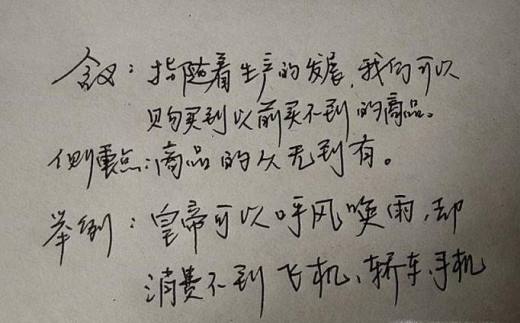 含义：指随着生产的发展，我们可以
购买到以前买不到的商品。
侧重点：商品的从无到有。
举例：皇帝可以呼风唤雨，却
消费不到飞机、轿车、手机